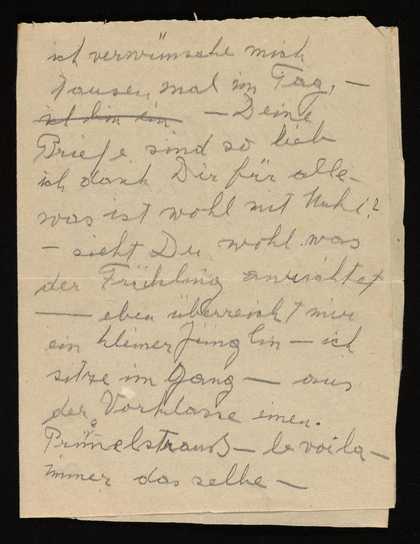 ich verwünsche mich
tausen mal im Tag, —
ich bin ein — Deine
Briefe sind so lieb
ich dank Dir für alle —
was ist wohl mit ?
— sieht Du wohl was
der Frühling anrichtet
— eben überreicht mir
ein kleiner Jünglin — ich
sitze im Gang — aus
der Vorklasse einen
Primelstrauß — le voila —
immer das selbe —